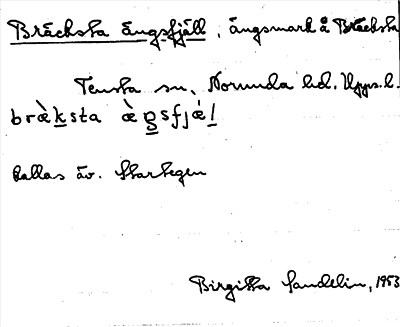 Bräcksta Ängsfjäll, ängsmark å Bräcksta
Tensta sn, Norunda hd. Upps. l.
bræ̀ksta æ̀ŋsfjæ̀l
Kallas äv. Starhegen
Birgitta Sandelin, 1953